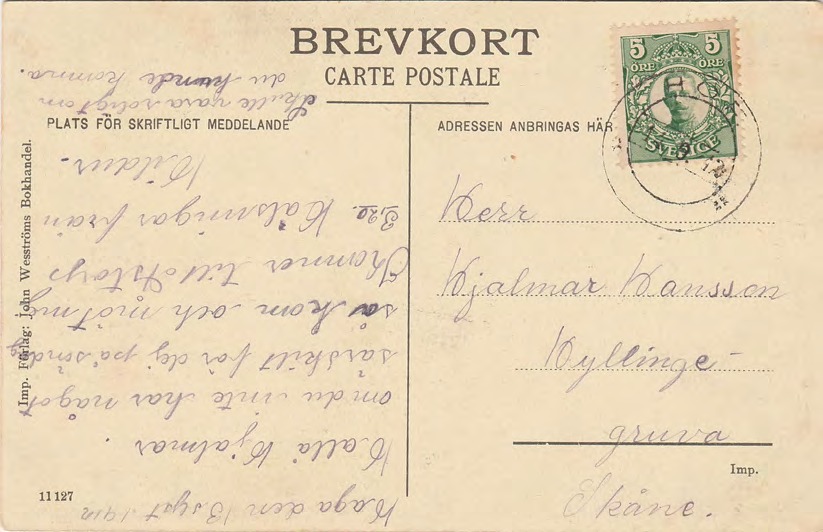 BREVKORT
CARTE POSTALE
PLATS FÖR SKRIFTLIGT MEDDELANDE
ADRESSEN ANBRINGAS HÄR
5 5
ÖRE ÖRE
SVERIGE
Herr
Hjalmar Hansson
Hyllinge-
gruva
Skåne.
Imp.
11127
Imp. Förlag: John Wesströms Bokhandel.
Haga den 13 sept. 1912
Hallå Hjalmar.
om du inte har något
särskilt för dej på sönd
ag
så kom och möt mej
Kommer till Åstorp
3,20. Hälsningar från
Hildur.
Skulle vara roligt om
du kunde komma.